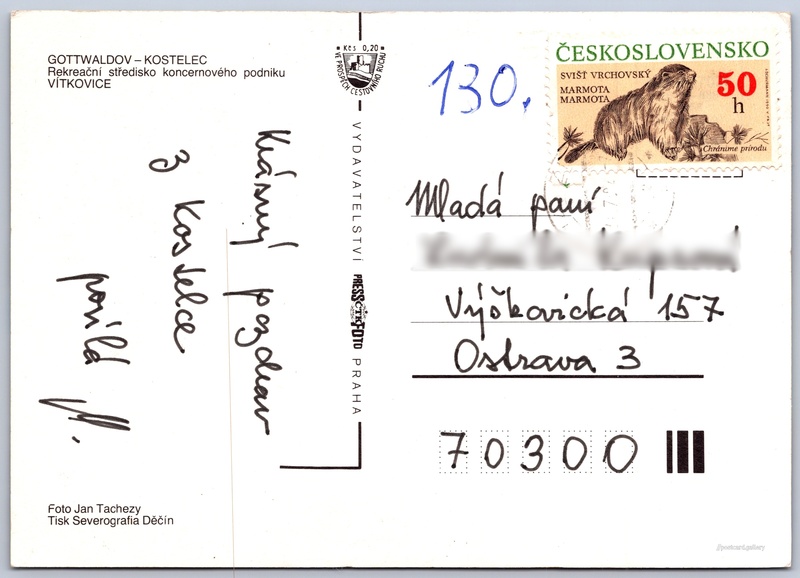 GOTTWALDOV – KOSTELEC
Rekreační středisko koncernového podniku
VÍTKOVICE
Krásný pozdrav
z Kostelce
posílá
Foto Jan Tachezy
Tisk Severografia Děčín
Kčs 0,20
VE PROSPĚCH CESTOVNÍHO RUCHU
VYDAVATELSTVÍ PRESSFOTO PRAHA
ČTK
130.
ČESKOSLOVENSKO
SVIŠŤ VRCHOVSKÝ
MARMOTA
MARMOTA
50
h
Chráníme přírodu
Mladá paní
Výškovická 157
Ostrava 3
70300
@postcard.gallery